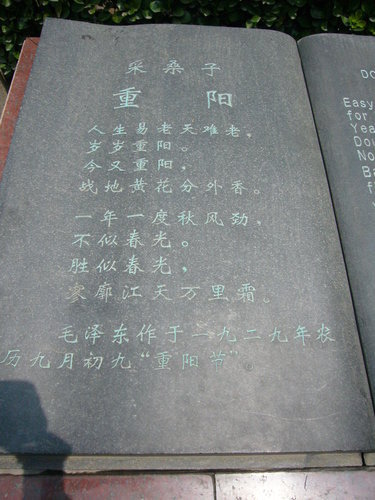 采桑子
重 阳
人生易老天难老，
岁岁重阳。
今又重阳，
战地黄花分外香。
一年一度秋风劲，
不似春光。
胜似春光，
寥廓江天万里霜。
毛泽东作于一九二九年农
历九月初九“重阳节”
DO
Easy
for
Yea
Dou
No
Ba
f